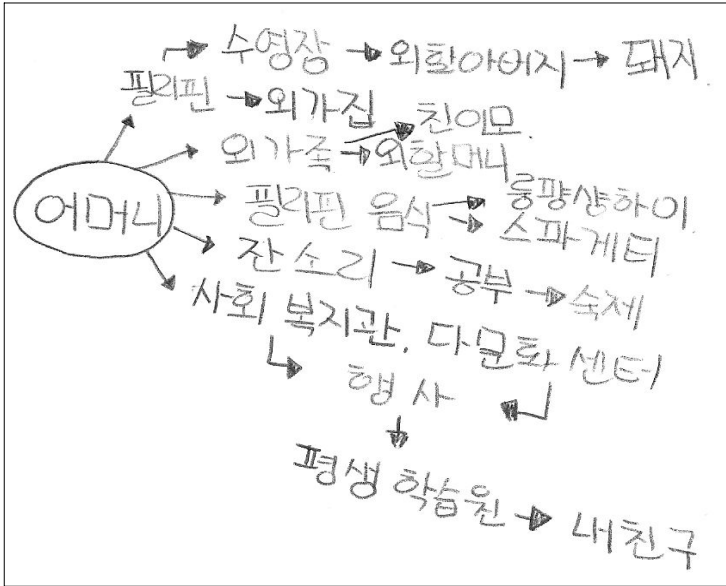 수영장 → 외할아버지 → 돼지
필리핀 → 외가집
친이모.
외가족 → 외할머니
어머니
필리핀 음식 → 룽퍙샹하이
→ 스파게티
잔소리 → 공부 → 숙제
사회 복지관, 다문화 센터
행사
평생 학습원 → 내 친구